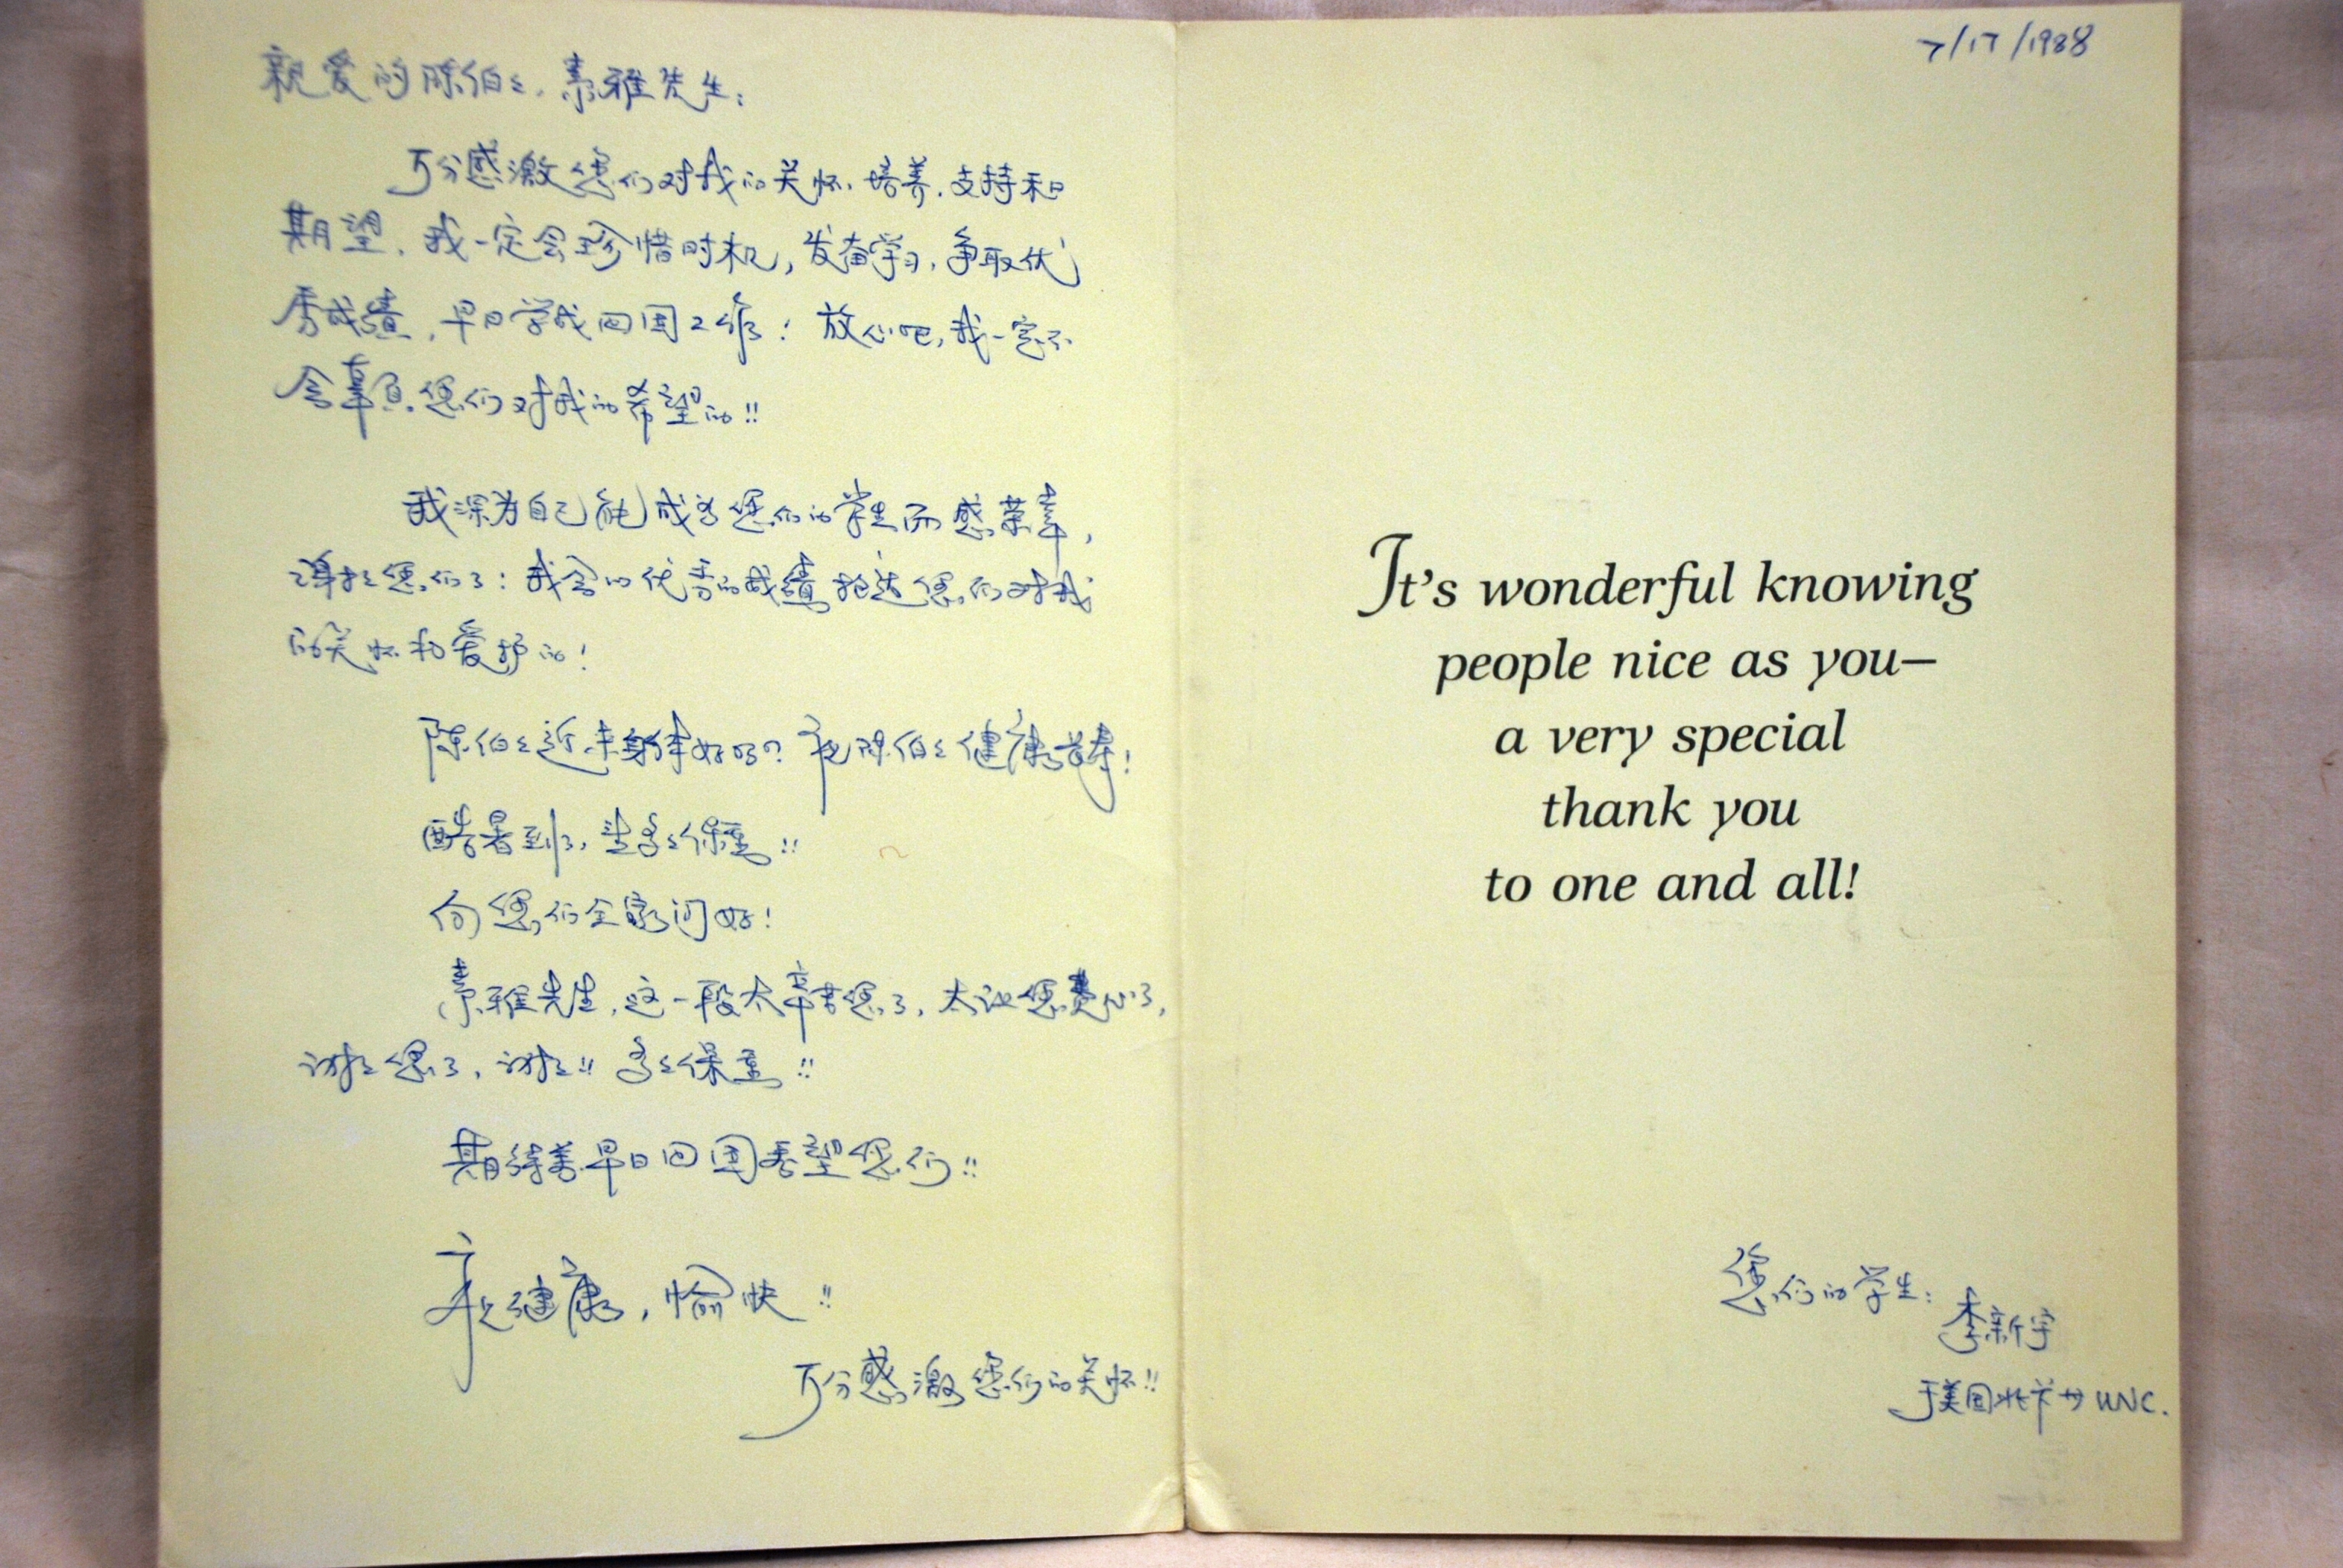 亲爱的陈伯伯、素雅先生：
万分感激您们对我的关怀、培养、支持和
期望，我一定会珍惜时机，发奋学习，争取优
秀成绩，早日学成回国工作！放心吧，我一定不
会辜负您们对我的希望的!!
我深为自己能成为您们的学生而感荣幸，
谢谢您们了！我会以优秀的成绩报达您们对我
的关怀和爱护的！
陈伯伯近来身体好吗？祝陈伯伯健康长寿！
酷暑到了，望多多保重!!
向您们全家问好！
素雅先生，这一段太辛苦您了，太让您费心了，
谢谢您了，谢谢!! 多多保重!!
期待着早日回国看望您们!!
祝健康，愉快!!
万分感激您们的关怀!!
7/17/1988
It's wonderful knowing
people nice as you—
a very special
thank you
to one and all!
您们的学生：
李新宇
于美国北卡州 UNC.